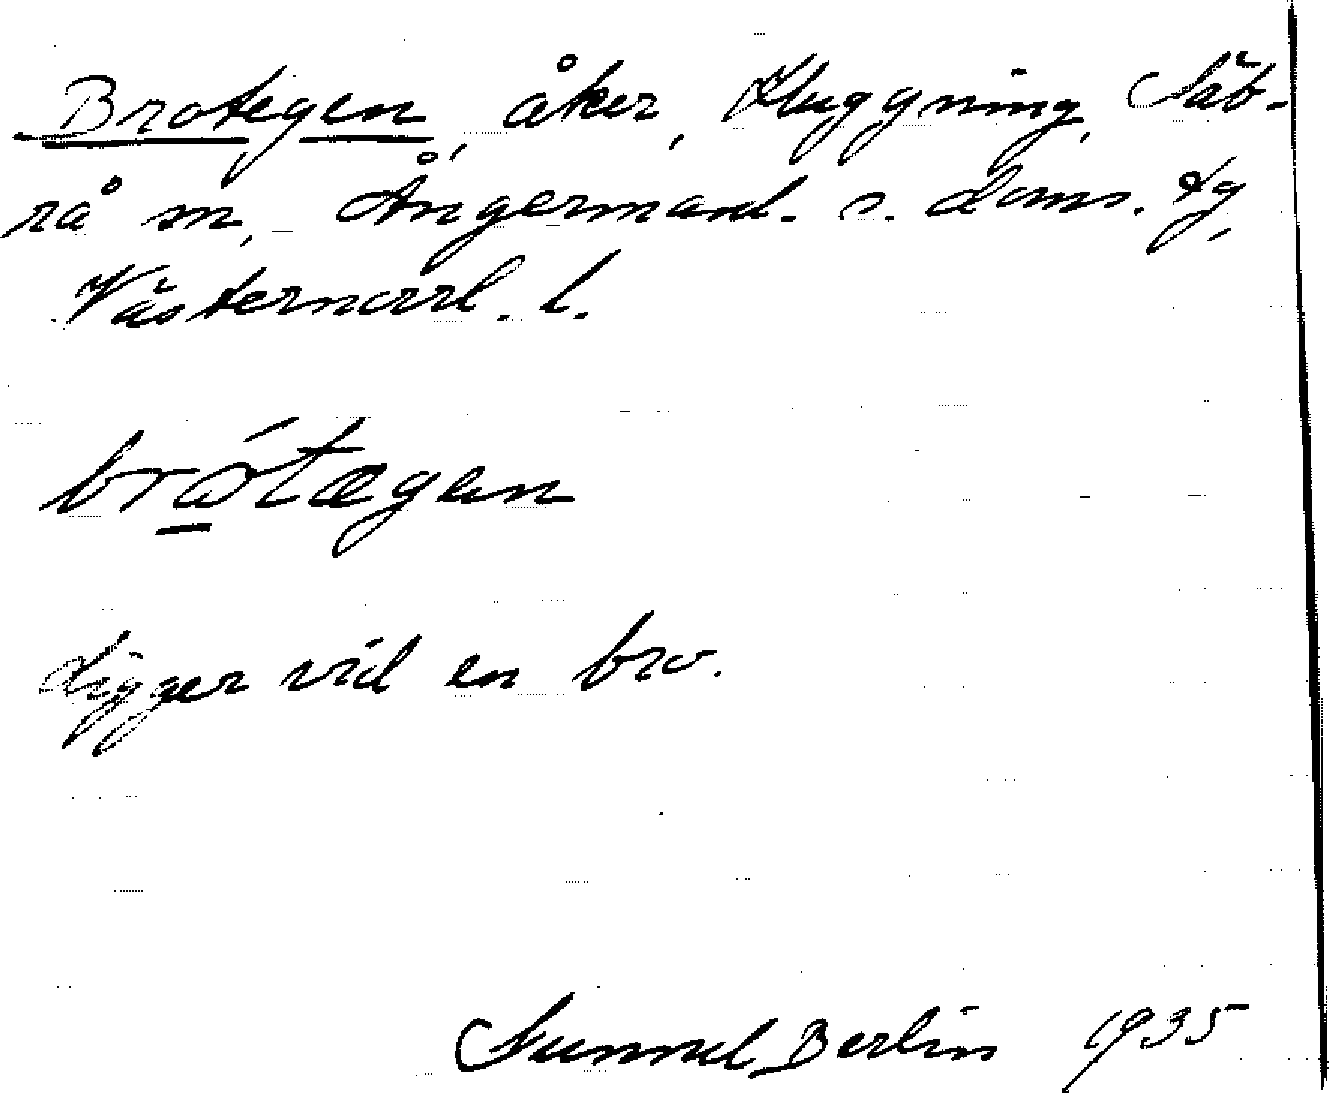 Brotegen, åker, Kluggning, Säb-
rå sn, Ångermanl. s. doms. dg,
Västernorrl. l.
brótægan
Ligger vid en bro.
Gunnel Berlin 1935